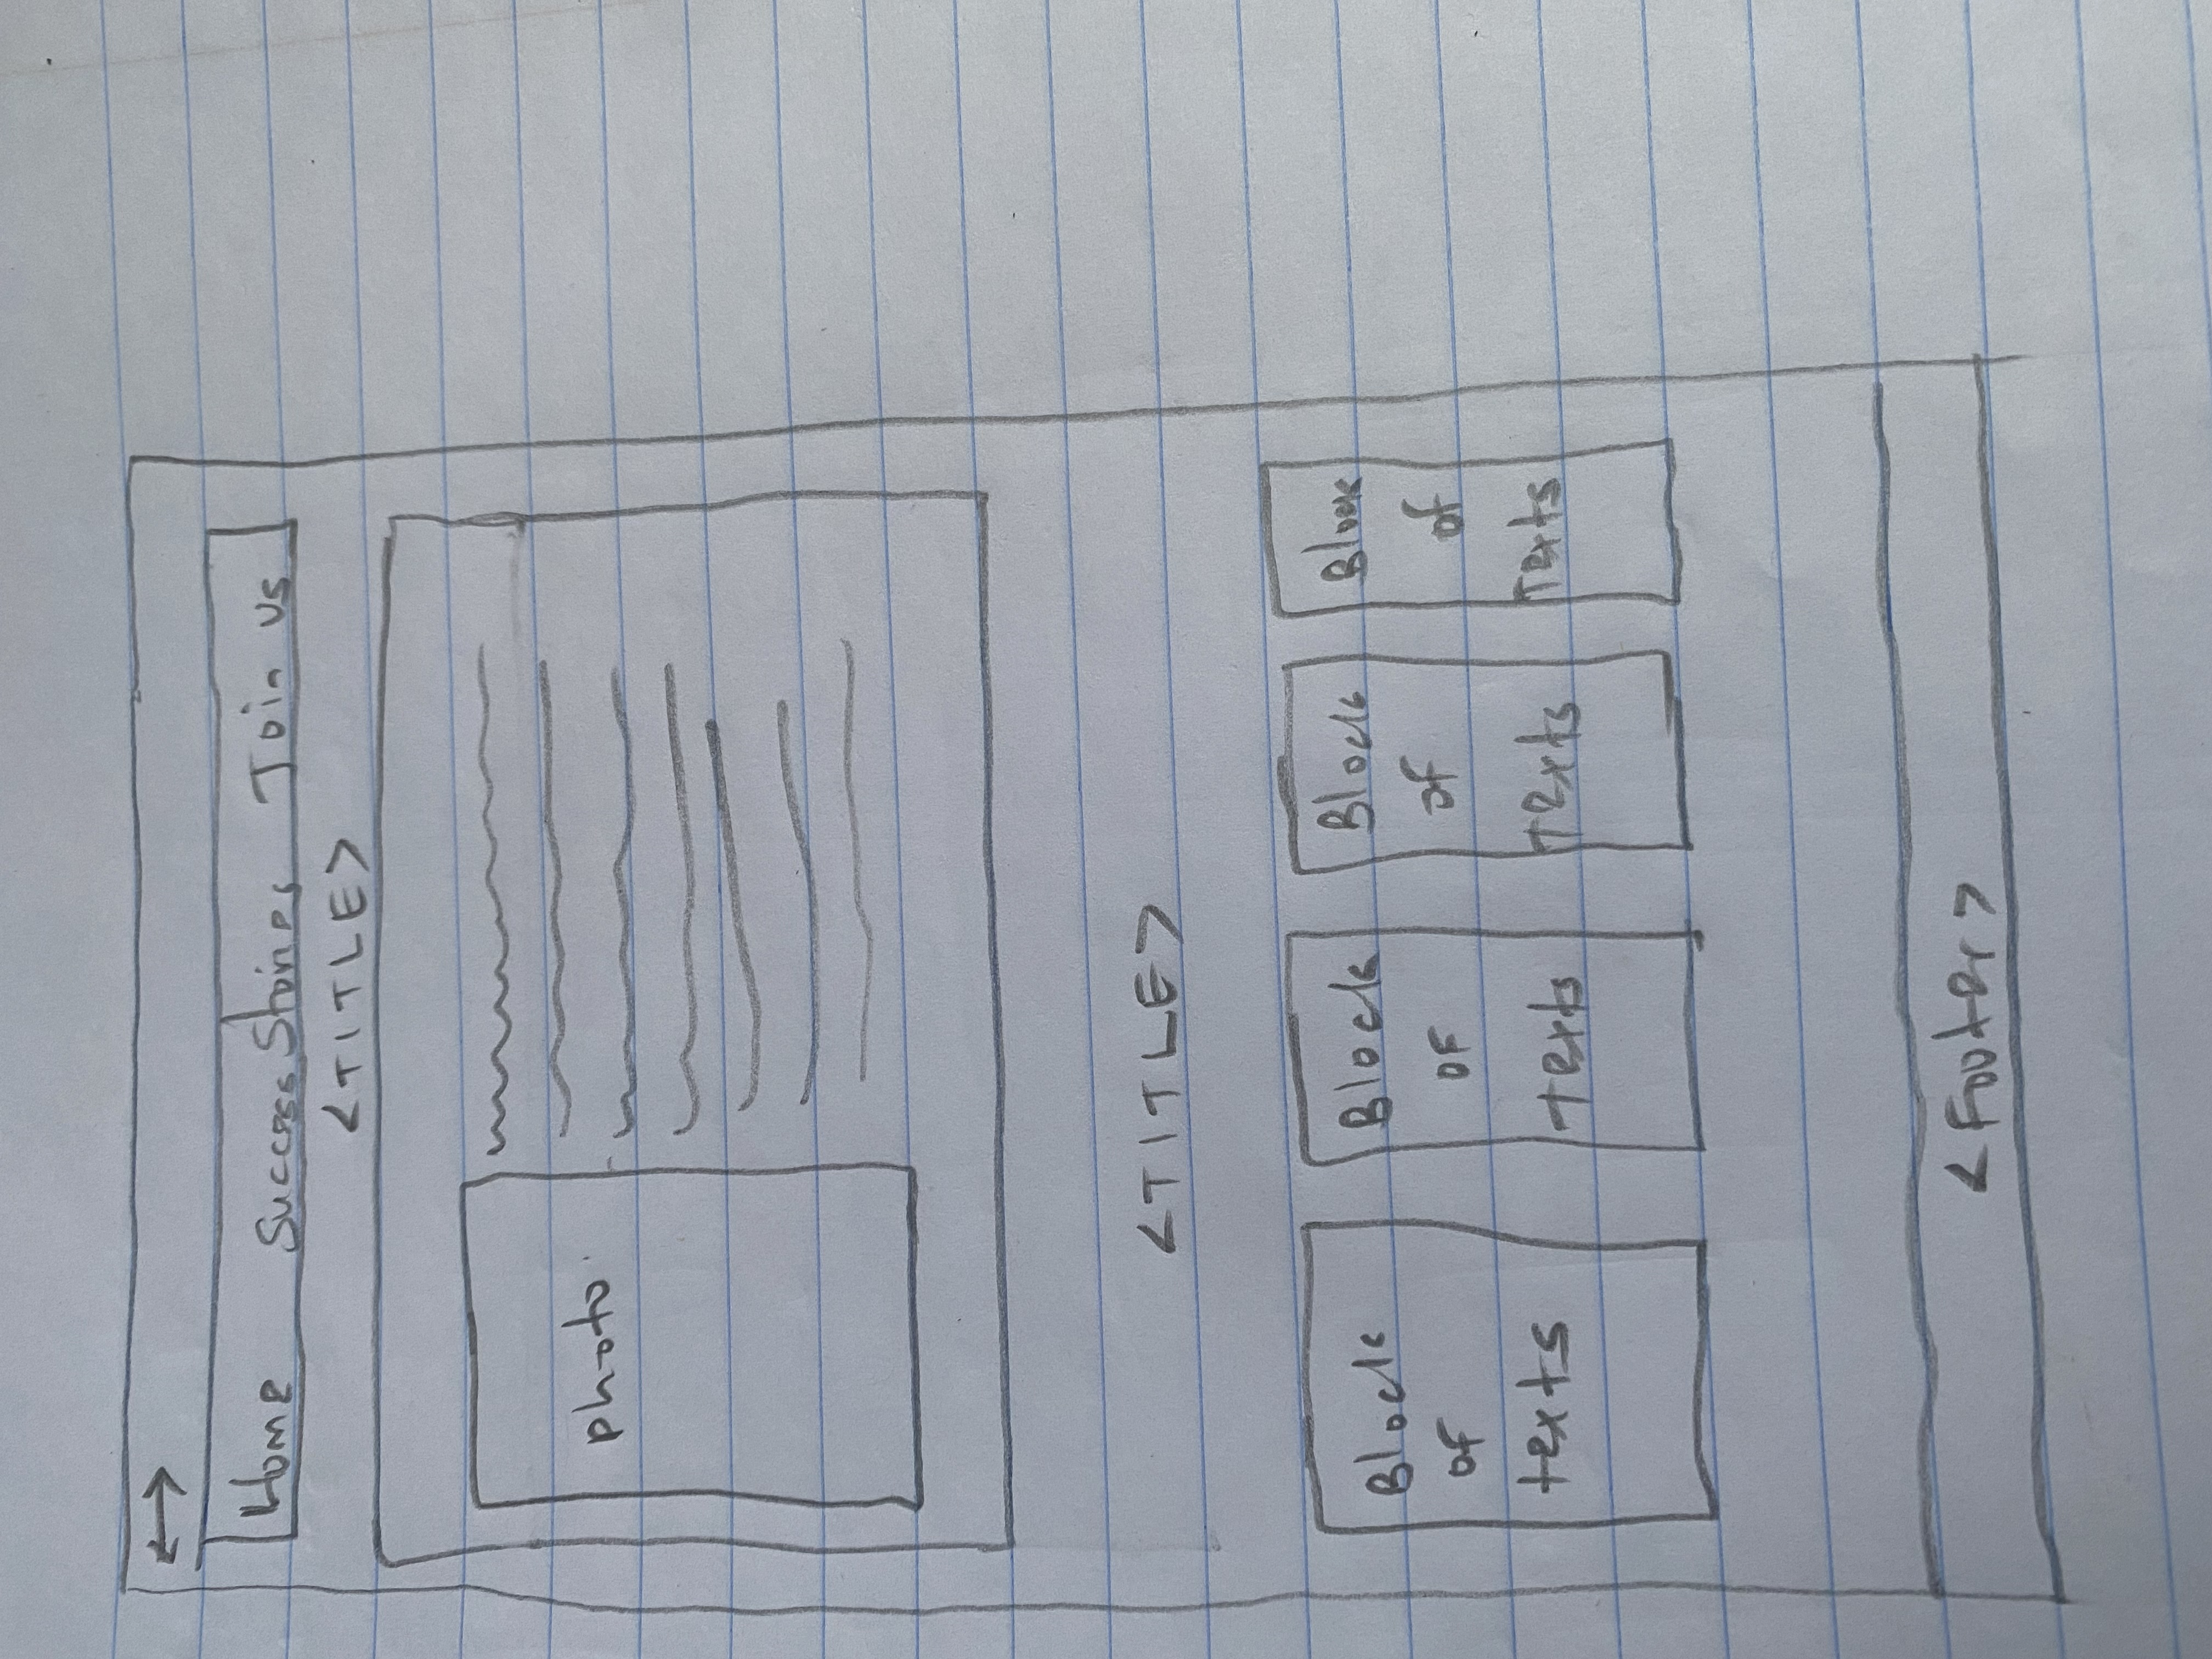 Home Success Stories Join us
<TITLE>
photo
<TITLE>
Block
of
texts
Block
OF
Texts
Block
of
Texts
Block
of
Texts
<Footer>